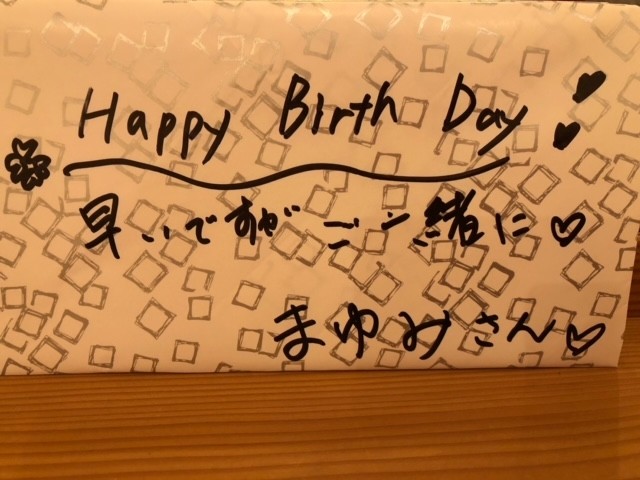 Happy Birth Day
早いですがご一緒に♡
まゆみさん♡